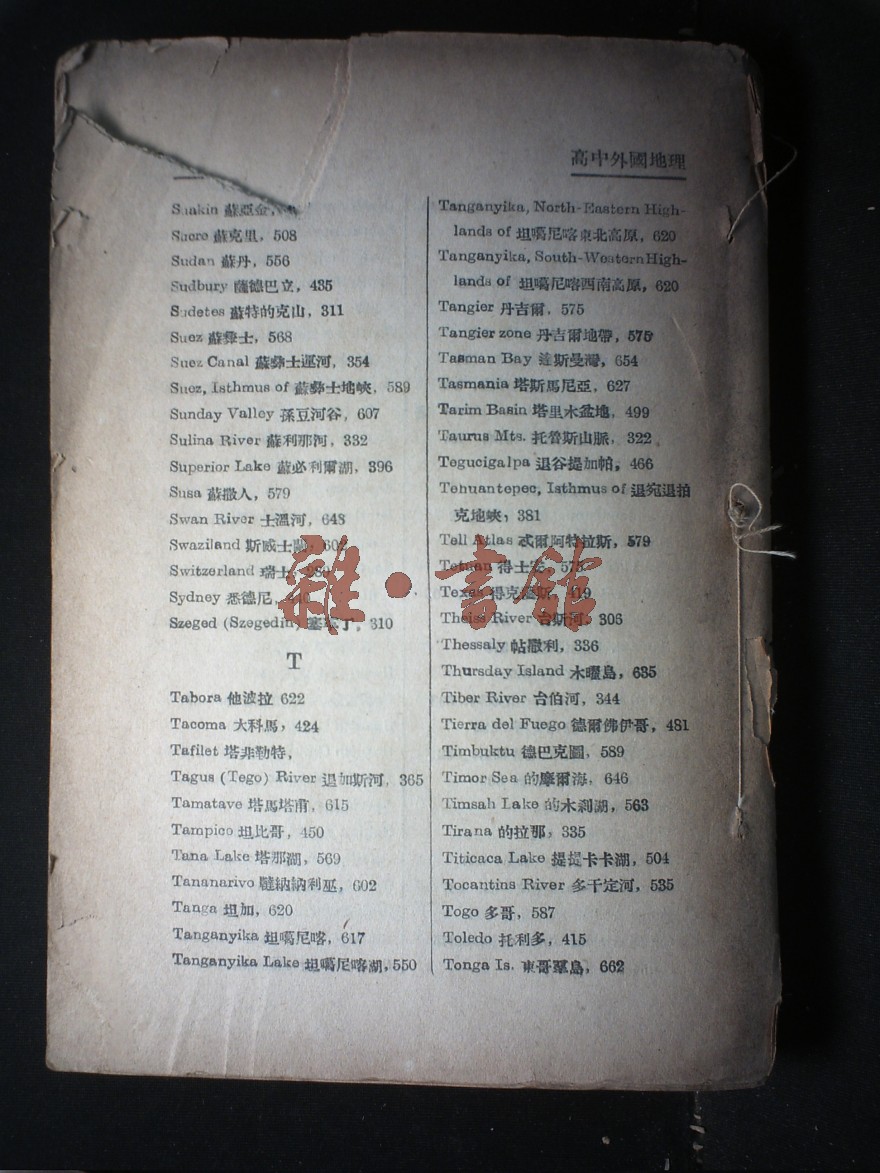 高中外國地理
Suakin 蘇亞金,
Sucre 蘇克里, 508
Sudan 蘇丹, 556
Sudbury 薩德巴立, 435
Sudetes 蘇特的克山, 311
Suez 蘇彝士, 568
Suez Canal 蘇彝士運河, 354
Suez, Isthmus of 蘇彝士地峽, 589
Sunday Valley 孫豆河谷, 607
Sulina River 蘇利那河, 332
Superior Lake 蘇必利爾湖, 396
Susa 蘇撒人, 579
Swan River 士溫河, 648
Swaziland 斯威士 602
Switzerland 瑞士,
Sydney 悉德尼,
Szeged (Szegedin) 丁, 310
T
Tabora 他波拉 622
Tacoma 大科馬, 424
Tafilet 塔非勒特,
Tagus (Tego) River 退加斯河, 365
Tamatave 塔馬塔甫, 615
Tampico 坦比哥, 450
Tana Lake 塔那湖, 569
Tananarivo 韃納納利巫, 602
Tanga 坦加, 620
Tanganyika 坦噶尼喀, 617
Tanganyika Lake 坦噶尼喀湖, 550
Tanganyika, North-Eastern High-
lands of 坦噶尼喀東北高原, 620
Tanganyika, South-Western High-
lands of 坦噶尼喀西南高原, 620
Tangier 丹吉爾, 575
Tangier zone 丹吉爾地帶, 575
Tasman Bay 達斯曼灣, 654
Tasmania 塔斯馬尼亞, 627
Tarim Basin 塔里木盆地, 499
Taurus Mts. 托魯斯山脈, 322
Tegucigalpa 退谷提加帕, 466
Tehuantepec, Isthmus of 退宛退拍
克地峽, 381
Tell Atlas 忒爾阿特拉斯, 579
Tetuan 得土安, 575
Texas 得克薩斯, 419
Theiss River 台斯河, 306
Thessaly 帖撒利, 336
Thursday Island 木曜島, 635
Tiber River 台伯河, 344
Tierra del Fuego 德爾佛伊哥, 481
Timbuktu 德巴克圖, 589
Timor Sea 的摩爾海, 646
Timsah Lake 的木剎湖, 563
Tirana 的拉那, 335
Titicaca Lake 提提卡卡湖, 504
Tocantins River 多干定河, 535
Togo 多哥, 587
Toledo 托利多, 415
Tonga Is. 東哥羣島, 662
雜·書館